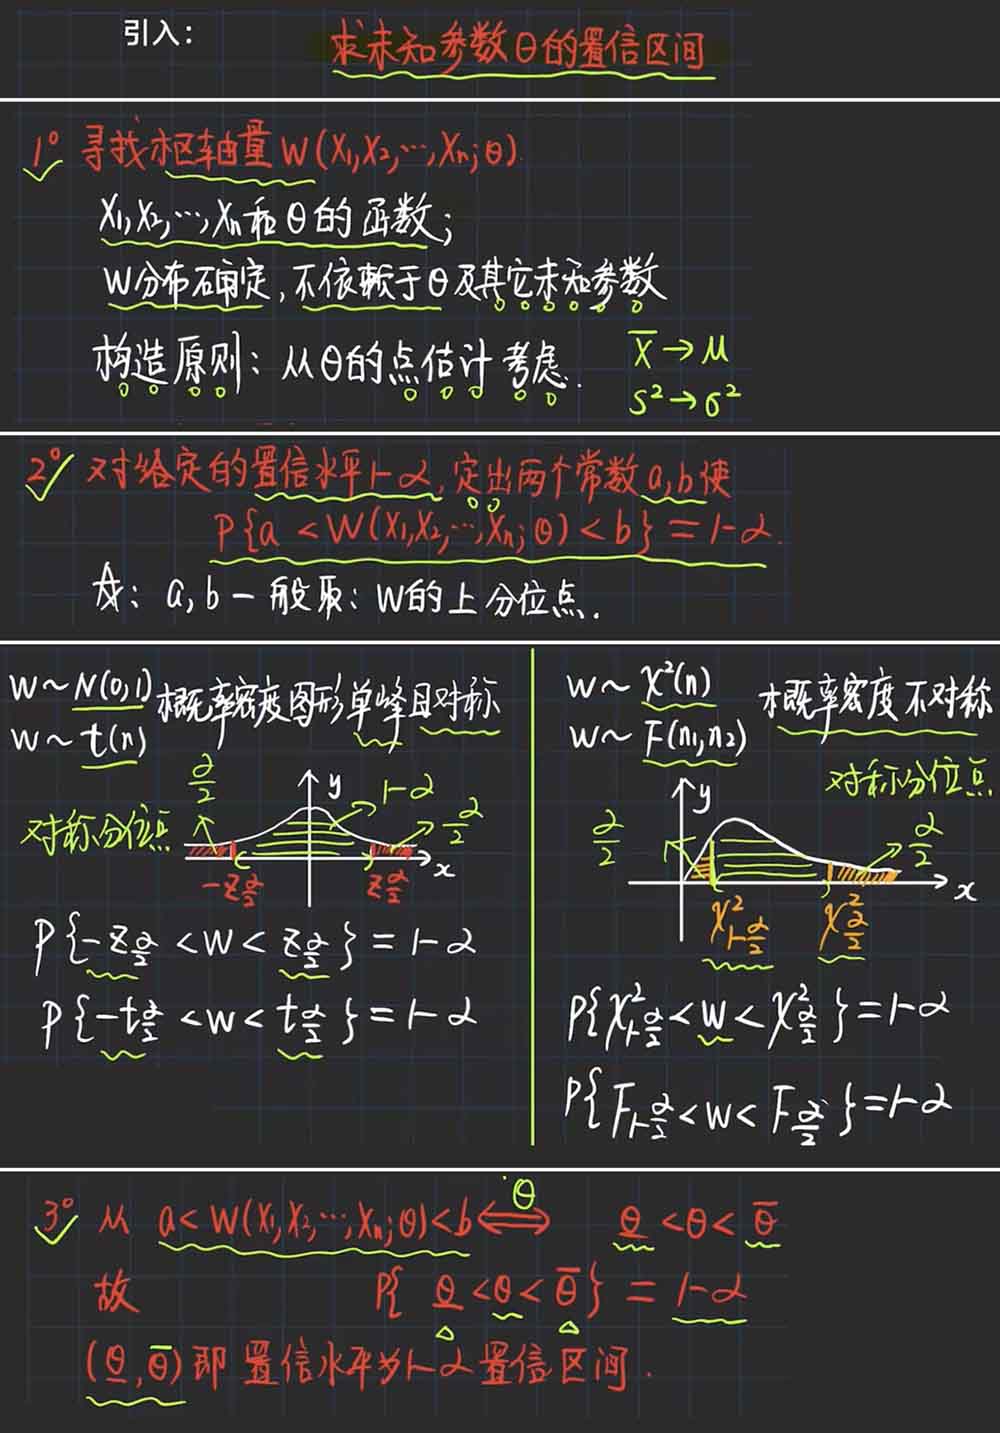 引入：
求未知参数θ的置信区间
1° 寻找枢轴量W(X₁,X₂,⋯,Xn;θ).
X₁,X₂,⋯,Xn和θ的函数；
W分布确定，不依赖于θ及其它未知参数
构造原则：从θ的点估计考虑.
X̄→μ
S²→σ²
2° 对给定的置信水平1-α，定出两个常数a,b使
P{a<W(X₁,X₂,⋯,Xn;θ)<b}=1-α.
☆：a,b一般取：W的上分位点.
W~N(0,1)
W~t(n)
概率密度图形单峰且对称
对称分位点
α/2
y
1-α
α/2
x
-z_{α/2}
z_{α/2}
P{-z_{α/2}<W<z_{α/2}}=1-α
P{-t_{α/2}<W<t_{α/2}}=1-α
W~χ²(n)
W~F(n₁,n₂)
概率密度不对称
对称分位点
α/2
y
α/2
x
χ²_{1-α/2}
χ²_{α/2}
P{χ²_{1-α/2}<W<χ²_{α/2}}=1-α
P{F_{1-α/2}<W<F_{α/2}}=1-α
3° 从 a<W(X₁,X₂,⋯,Xn;θ)<b ⟺ θ̲<θ<θ̄
θ
故 P{θ̲<θ<θ̄}=1-α
(θ̲,θ̄)即置信水平为1-α置信区间.